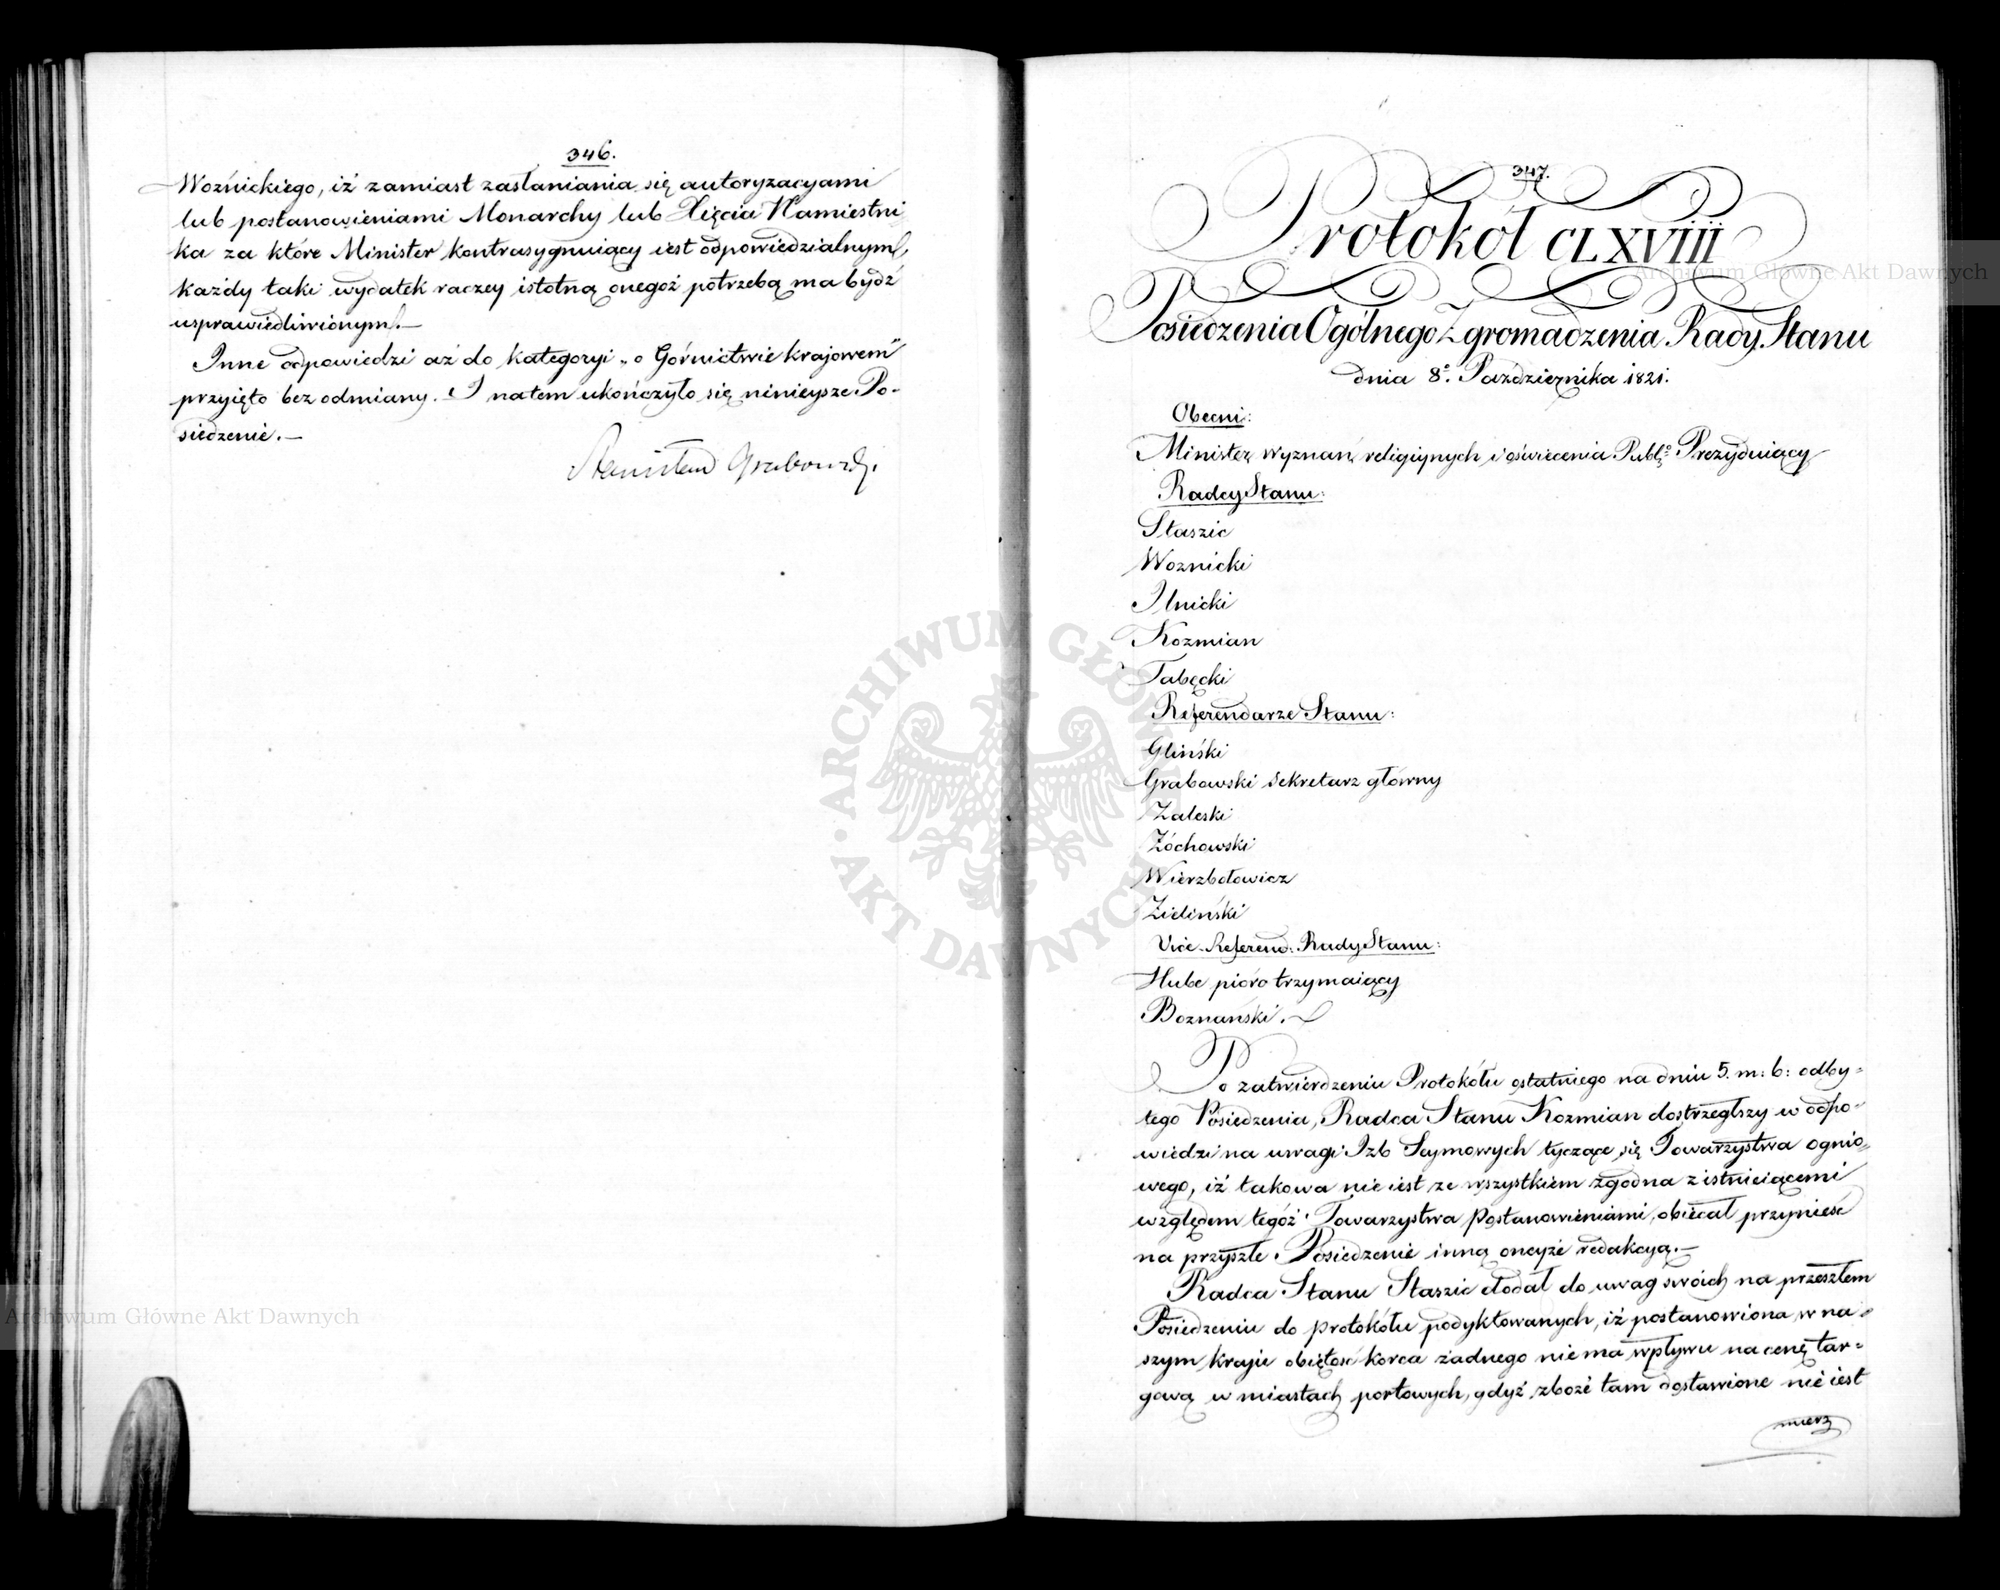 346.
Woźnickiego, iż zamiast zasłaniania się autoryzacyami
lub postanowieniami Monarchy lub Xięcia Namiestni-
ka za które Minister kontrasygnuiący iest odpowiedzialnym,
każdy taki wydatek raczey istotną onegoż potrzebą ma bydź
usprawiedliwionym.—
Inne odpowiedzi aż do kategoryi „o Górnictwie krajowem"
przyięto bez odmiany. I na tem ukończyło się ninieysze Po-
siedzenie.—
Stanisław Grabowski.
347.
Protokół CLXVIII
Posiedzenia Ogólnego Zgromadzenia Rady Stanu
dnia 8o. Października 1821.
Obecni:
Minister wyznań religiynych i oświecenia Publo. Prezyduiący
Radcy Stanu:
Staszic
Woznicki
Ilnicki
Kozmian
Tabęcki
Referendarze Stanu:
Gliński
Grabowski sekretarz główny
Zaleski
Żóchowski
Wierzbołowicz
Zieliński
Vice-Referend: Rady Stanu:
Hube pióro trzymaiący
Boznański.
Po zatwierdzeniu Protokółu ostatniego na dniu 5. m: b: odby-
tego Posiedzenia, Radca Stanu Kozmian dostrzegłszy w odpo-
wiedzi na uwagi Izb Seymowych tyczące się Towarzystwa ognio-
wego, iż takowa nie iest ze wszystkiem zgodna z istnieiącemi
względem tegóż Towarzystwa Postanowieniami, obiecał przynieść
na przyszłe Posiedzenie inną oneyże redakcyą.—
Radca Stanu Staszic dodał do uwag swoich na przeszłem
Posiedzeniu do protokółu podyktowanych, iż postanowiona w na-
szym kraju obiętość korca żadnego nie ma wpływu na cenę tar-
gową w miastach portowych, gdyż zboże tam dostawione nie iest
mierz
Archiwum Główne Akt Dawnych
Archiwum Główne Akt Dawnych
ARCHIWUM GŁÓWNE AKT DAWNYCH